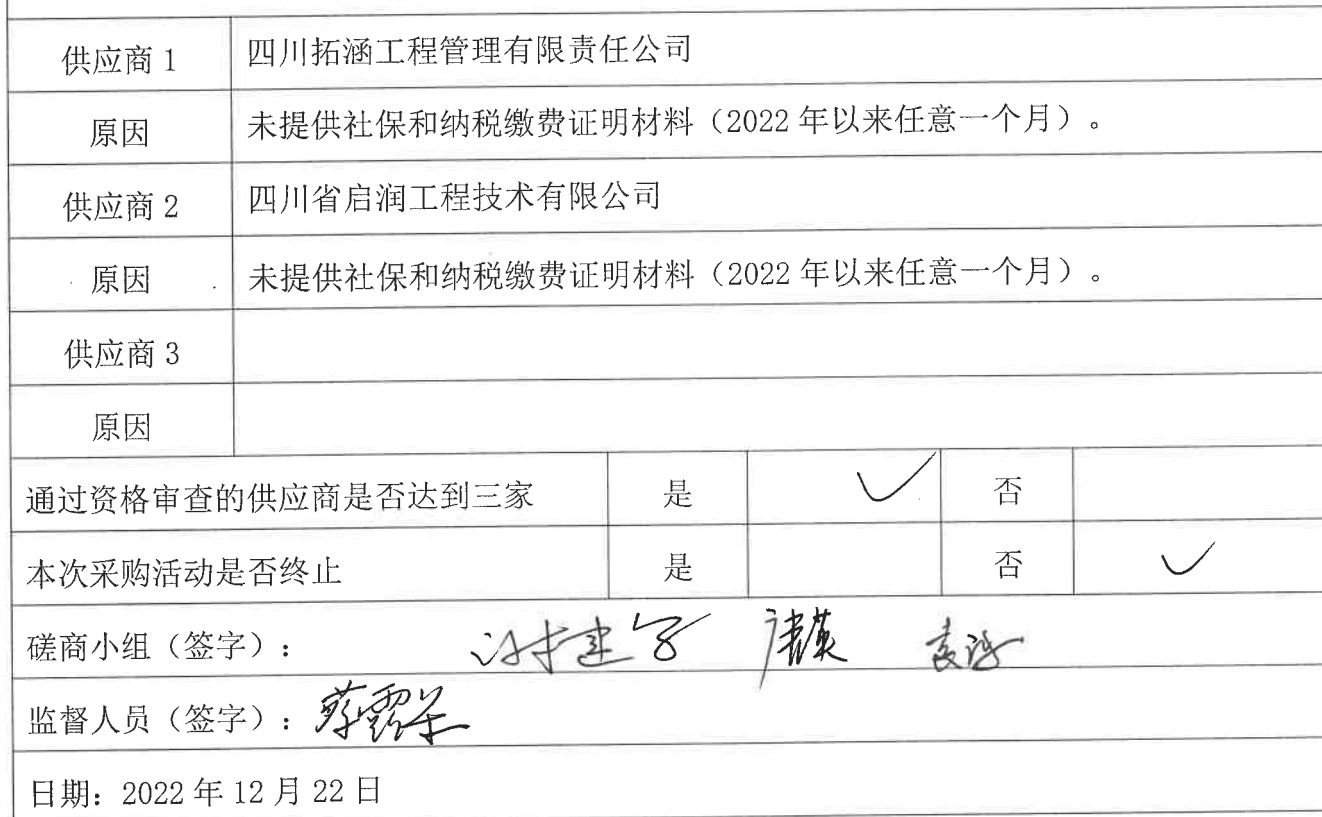 供应商 1 四川拓涵工程管理有限责任公司
原因 未提供社保和纳税缴费证明材料（2022 年以来任意一个月）。
供应商 2 四川省启润工程技术有限公司
原因 未提供社保和纳税缴费证明材料（2022 年以来任意一个月）。
供应商 3
原因
通过资格审查的供应商是否达到三家 是 ✓ 否
本次采购活动是否终止 是 否 ✓
磋商小组（签字）：
监督人员（签字）：
日期：2022 年 12 月 22 日